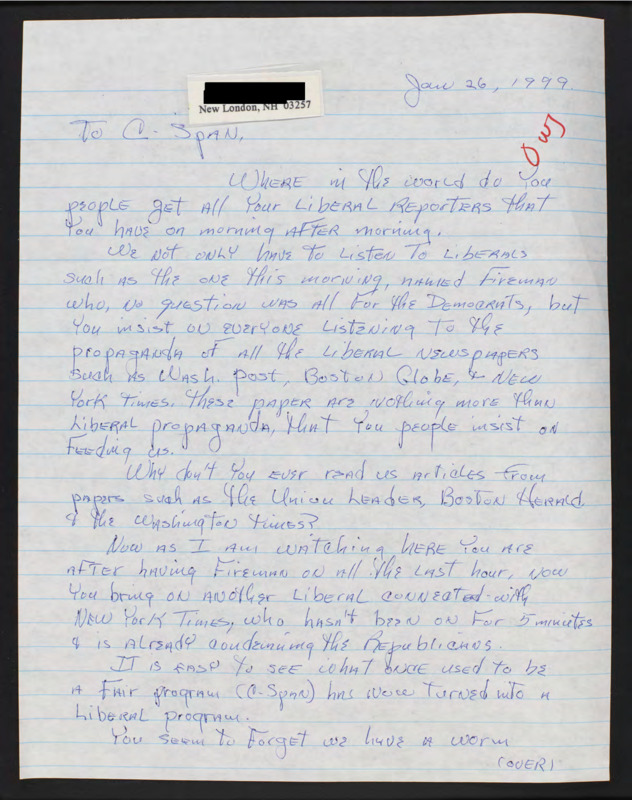 Jan 26, 1999
New London, NH 03257
To C-Span,
Where in the world do you
people get all your Liberal Reporters that
you have on morning after morning.
We not only have to listen to Liberals
such as the one this morning, named Fireman
who, no question was all for the Democrats, but
you insist on everyone listening to the
propaganda of all the Liberal newspapers
such as Wash. Post, Boston Globe, & New
York Times. These paper are nothing more than
Liberal propaganda, that you people insist on
feeding us.
Why don't you ever read us articles from
papers such as the Union Leader, Boston Herald
& the Washington Times?
Now as I am watching, here you are
after having Fireman on all the last hour, now
you bring on another Liberal connected with
New York Times, who hasn't been on for 5 minutes
& is already condemning the Republicans.
It is easy to see what once used to be
a fair program (C-Span) has now turned into a
Liberal program.
You seem to forget we have a worm
(over)